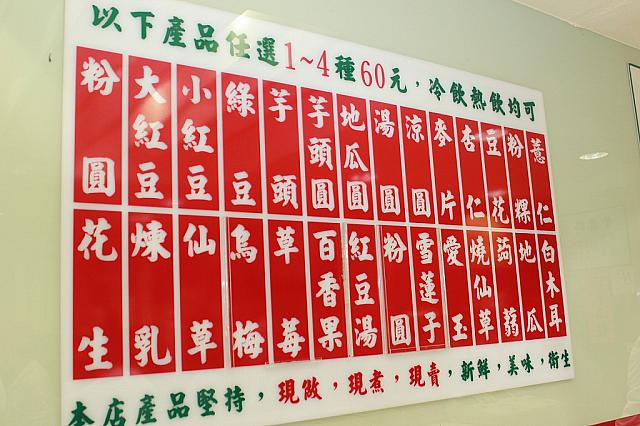 以下產品任選1~4種60元，冷飲熱飲均可
粉圓 大紅豆 小紅豆 綠豆 芋頭 芋頭圓 地瓜圓 湯圓 涼圓 麥片 杏仁 豆花 粉粿 薏仁
花生 煉乳 仙草 烏梅 草莓 百香果 紅豆湯 粉圓 雪蓮子 愛玉 燒仙草 蒟蒻 地瓜 白木耳
本店產品堅持，現做，現煮，現賣，新鮮，美味，衛生